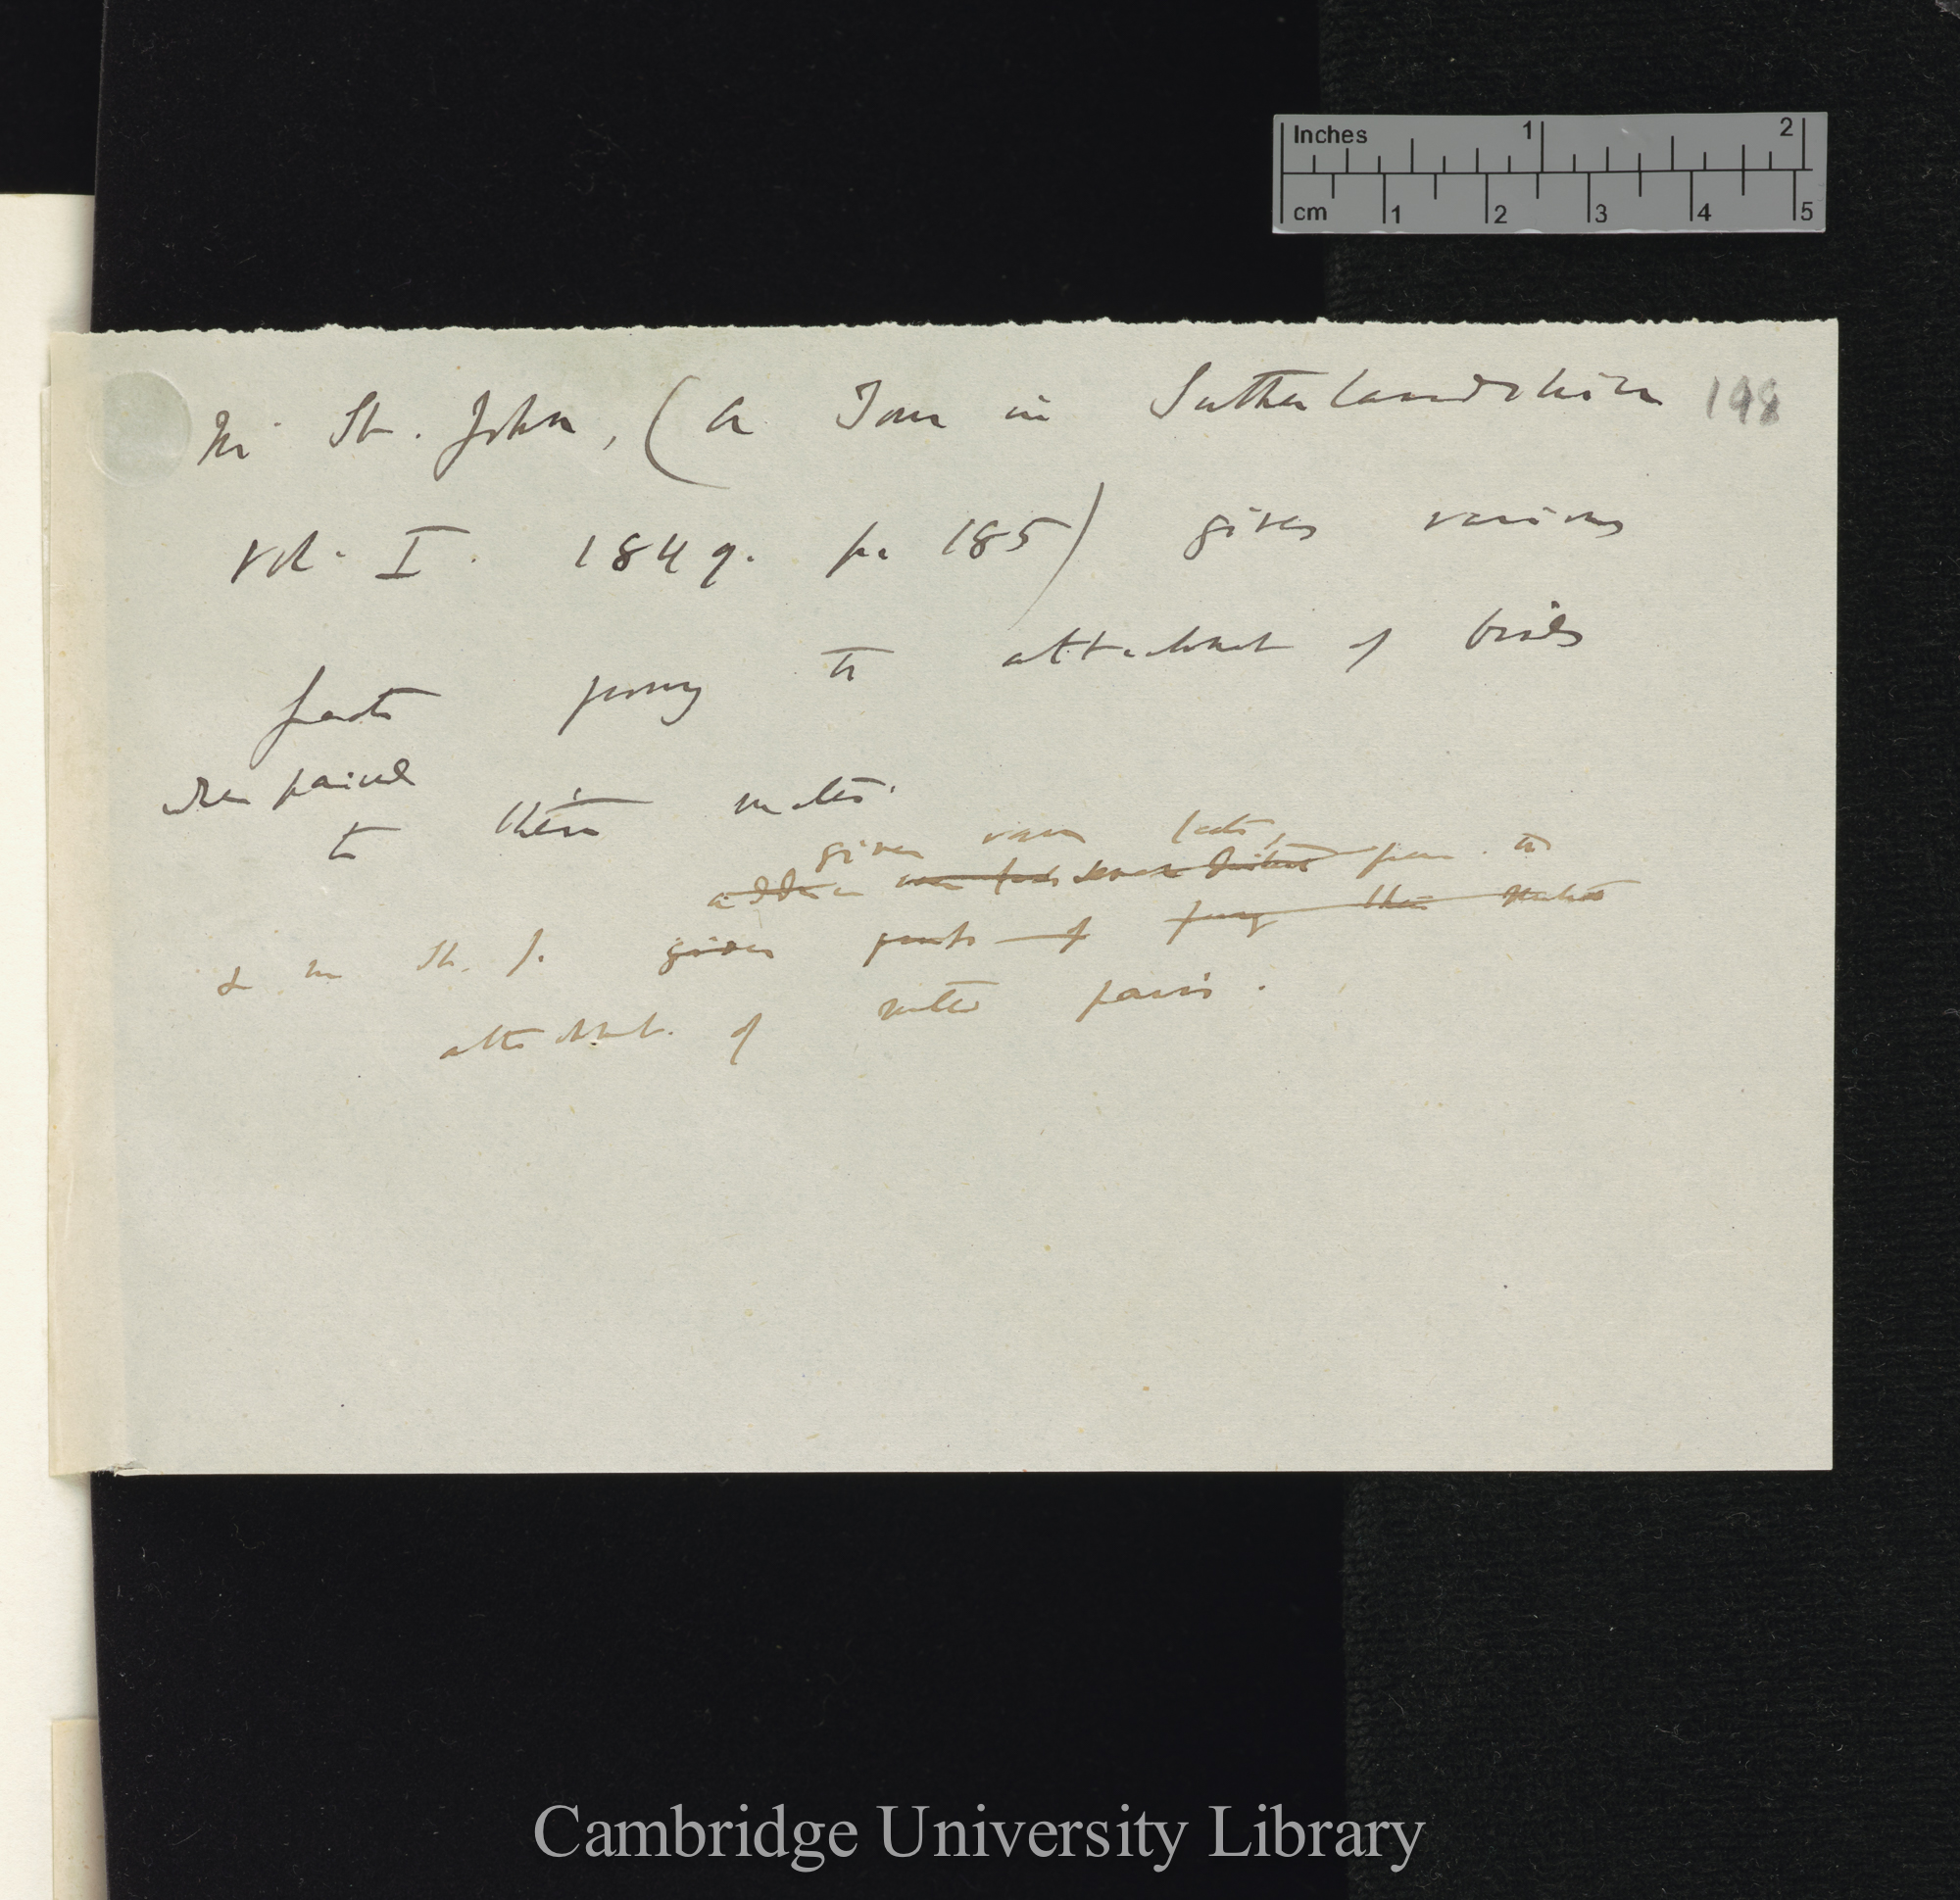 Inches 1 2
cm 1 2 3 4 5
Mr St. John, (A Tour in Sutherlandshire 198
vol. I. 1849. p. 185) gives various
facts proving the attachment of birds
when paired
to their mates.
gives various facts,
the
& Mr St. J. gives of their mates
attachment of mates pairs.
Cambridge University Library